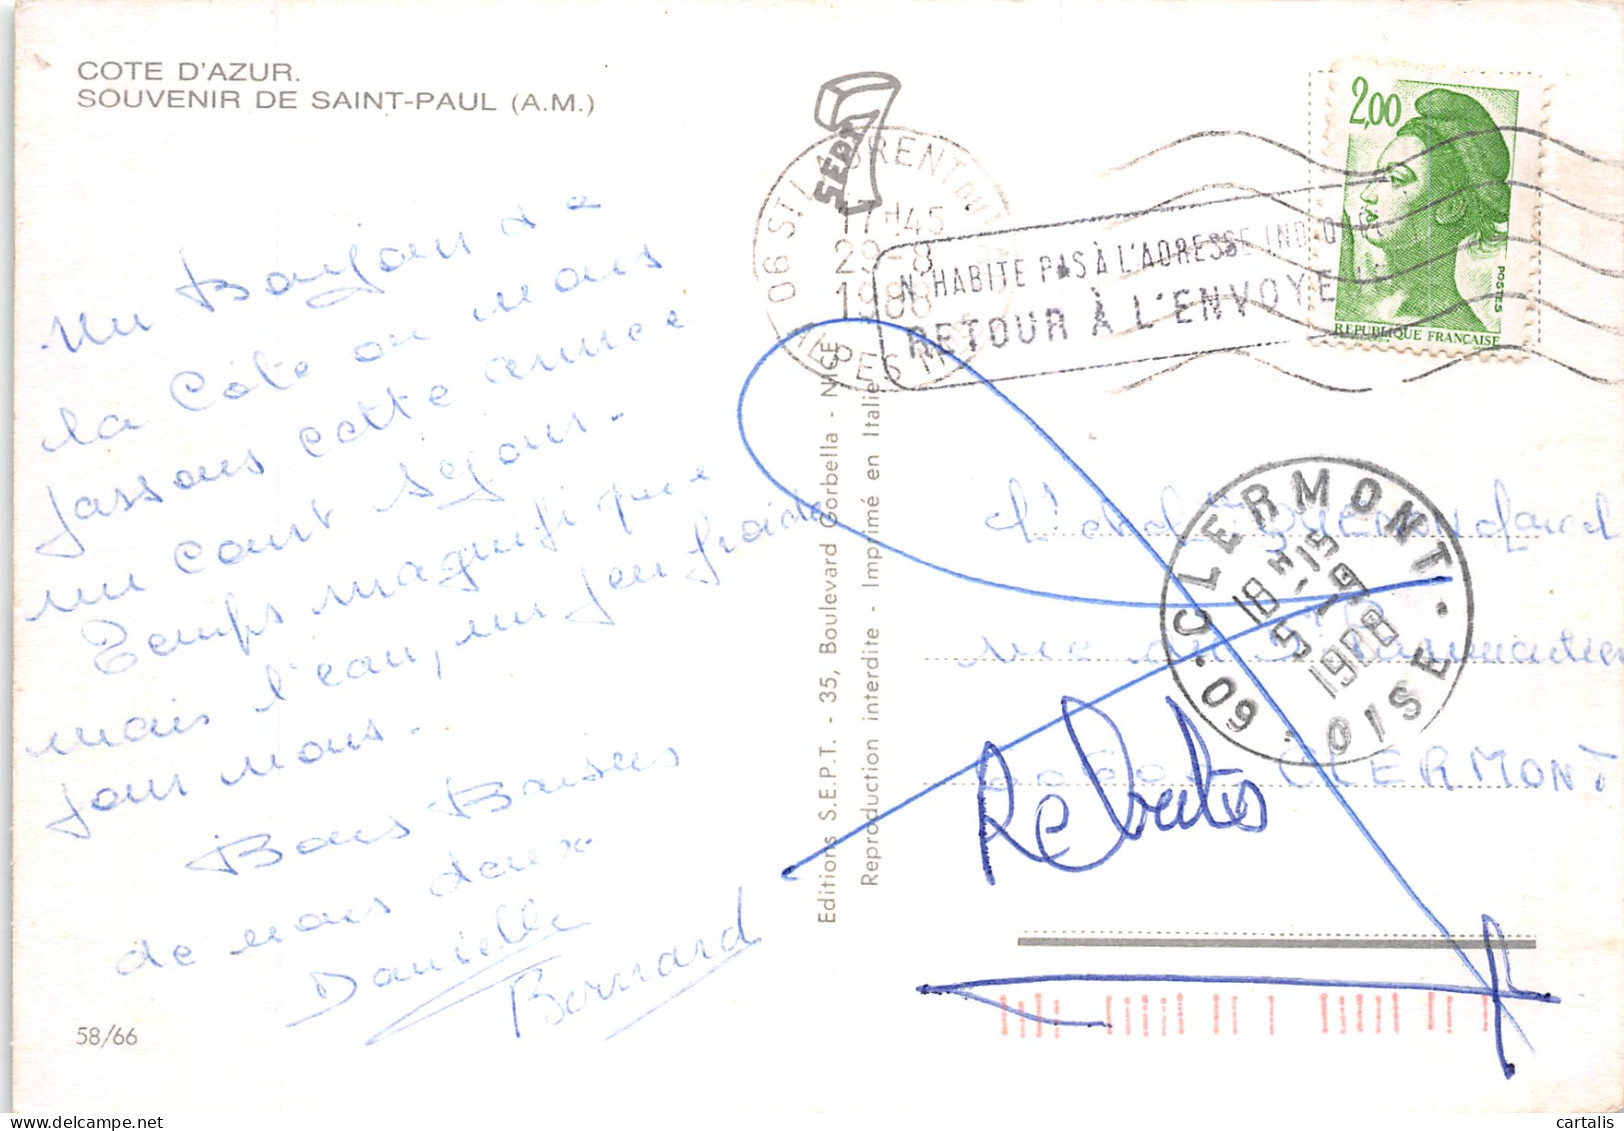 COTE D'AZUR.
SOUVENIR DE SAINT-PAUL (A.M.)
Un Bonjour de
la Côte ou nous
passons cette année
un court séjour.
Temps magnifique
mais l'eau, un peu froide
pour nous.
Bons Baisers
de nous deux
Danielle
Bernard
58/66
SEPT
06 ST LAURENT DU VAR
17H45
29-8
1988
ALPES MMES
N'HABITE PAS À L'ADRESSE INDIQUÉE
RETOUR À L'ENVOYEUR
2,00
POSTES
REPUBLIQUE FRANÇAISE
Editions S.E.P.T. - 35, Boulevard Gorbella - NICE
Reproduction interdite - Imprimé en Italie
CLERMONT
18H15
5-9
1988
60 OISE
rue
CLERMONT
Rebuts
cartalis
www.delcampe.net